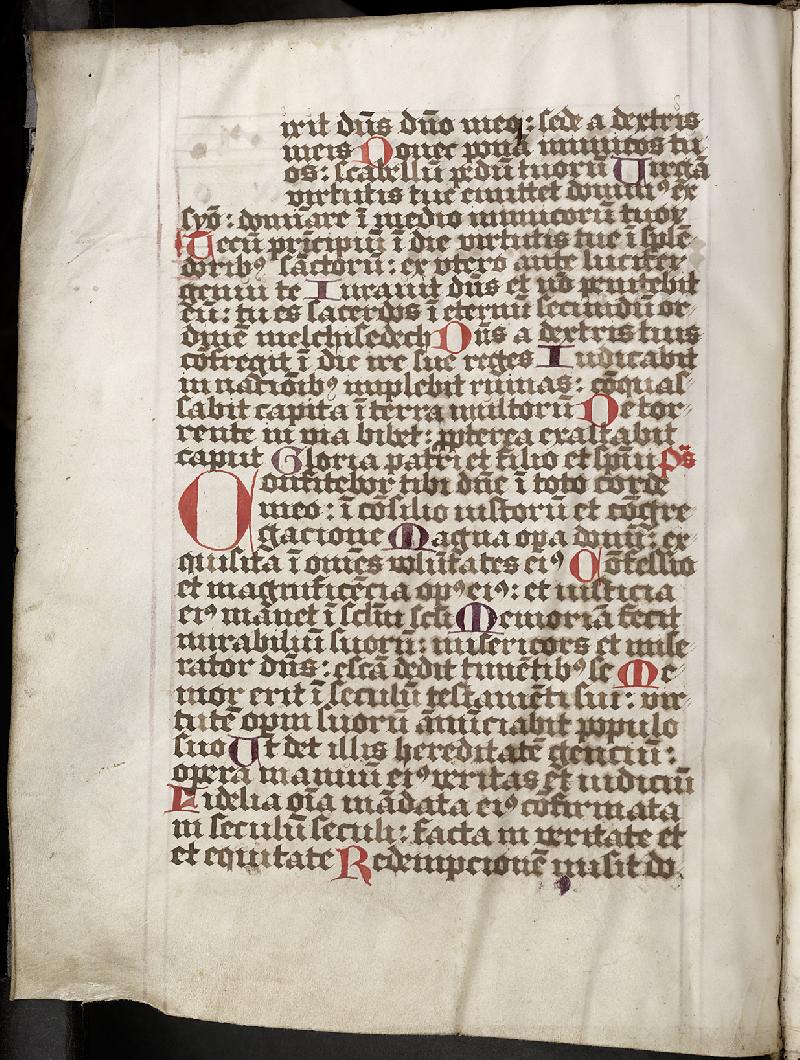 ixit dn̄s dn̄o meo: sede a dextris
meis Donec ponā inimicos tu
os: scabellū pedū tuorū Uirgā
virtutis tue emittet domin⁹ ex
syō: dominare ī medio inimicorū tuor
Tecū prīcipiū ī die virtutis tue ī splē
dorib⁹ sāctorū: ex vtero ante lucifer
genui te Iurauit dn̄s et nō penitebit
eū: tu es sacerdos ī eternū secundū or
dinē melchisedech Dn̄s a dextris tuis
cōfregit ī die ire sue reges Iudicabit
in naciōib⁹ implebit ruinas: cōquas
sabit capita ī terra multorū De tor
rente in via bibet: ꝓpterea exaltabit
caput Gloria patri et filio et spūi p̄s
Confitebor tibi dn̄e ī toto corde
meo: ī cōsilio iustorū et cōgre
gacione Magna oꝑa domī: ex
quisita ī om̄es volūtates ei⁹ Cōfessio
et magnificēcia op⁹ ei⁹: et iusticia
ei⁹ manet ī sclm̄ scl̄i Memoriā fecit
mirabiliū suorū: misericors et mise
rator dn̄s: escā dedit timētib⁹ se Me
mor erit ī seculū testamēti sui: vir
tutē opm̄ suorū ānūciabit populo
suo Ut det illis hereditatē genciū:
opera manuū ei⁹ veritas et iudiciū
Fidelia oīa mādata ei⁹ cōfirmata
in seculū seculi: facta in veritate et
et equitate Redempcionē misit do